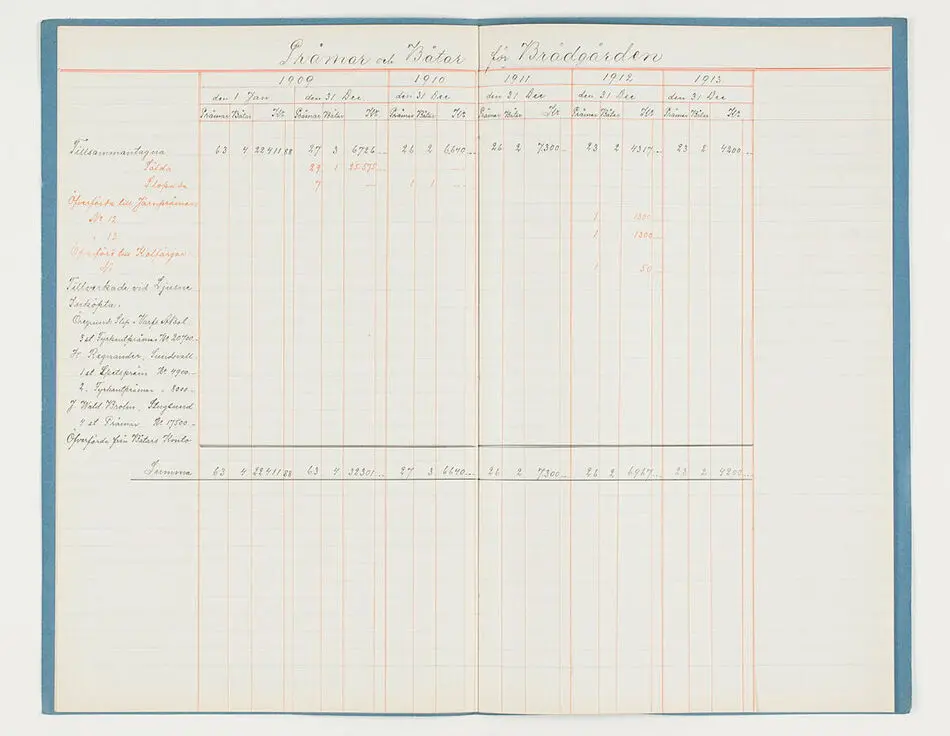 Pråmar och Båtar för Brädgården
1909 1910 1911 1912 1913
den 1 Jan den 31 Dec den 31 Dec den 31 Dec den 31 Dec den 31 Dec
Pråmar Båtar Kr Pråmar Båtar Kr Pråmar Båtar Kr Pråmar Båtar Kr Pråmar Båtar Kr Pråmar Båtar Kr
Tillsammantagna 63 4 22411 88 27 3 6726 26 2 6640 26 2 7300 23 2 4317 23 2 4200
Sålda 29 1 25575
Slopade 7 1 1
Öfverförda till Järnpråmar
No 12 1 1300
" 13 1 1300
Öfverförd till Kolfärgar
No 1 1 50
Tillverkade vid Ljusne
Inköpta.
Öregrund Slip & Varfs Aktbol.
3 st Fyrkantpråmar Kr 20700.-
H. Regnander, Sundsvall.
1 st Spetspråm Kr 4900.-
2. Fyrkantpråmar " 8000.-
J. Wald Brolin, Skogsund
4 st Pråmar Kr 17500.-
Öfverförda från Båtars Konto
Summa 63 4 22411 88 63 4 32301 27 3 6640 26 2 7300 26 2 6967 23 2 4200